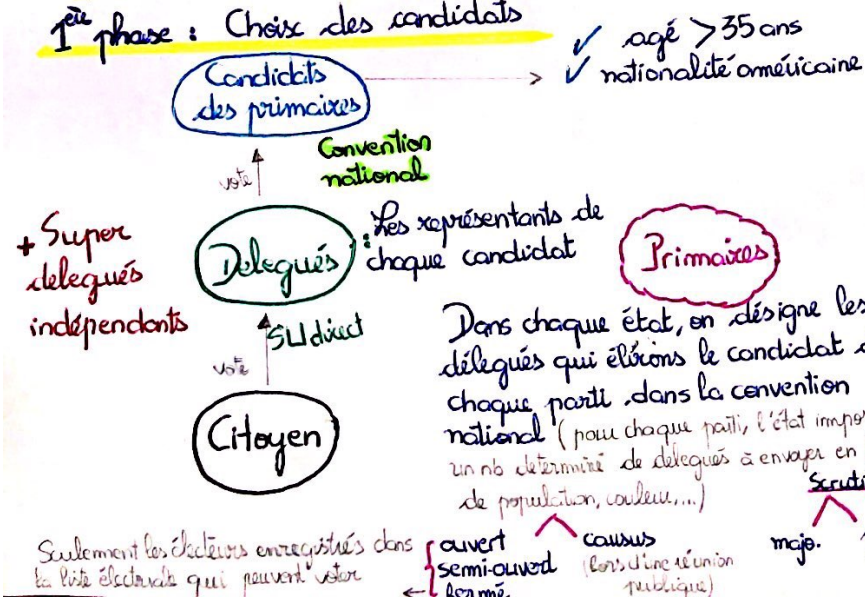 1ère phase : Choix des candidats
✓ agé > 35 ans
✓ nationalité américaine
Candidats
des primaires
vote
Convention
national
+ Super
delegués
indépendants
Delegués
: Les représentants de
chaque candidat
Primaires
vote
SU direct
Citoyen
Dans chaque état, on désigne les
délegués qui élirons le candidat
chaque parti dans la convention
national (pour chaque parti, l'état
un nb determiné de delegués à envoyer en
de population, couleur,...)
Seulement les électeurs enregistrés dans
la liste électorale qui peuvent voter
ouvert
semi-ouvert
fermé
causus
(lors d'une réunion
publique)
majo.